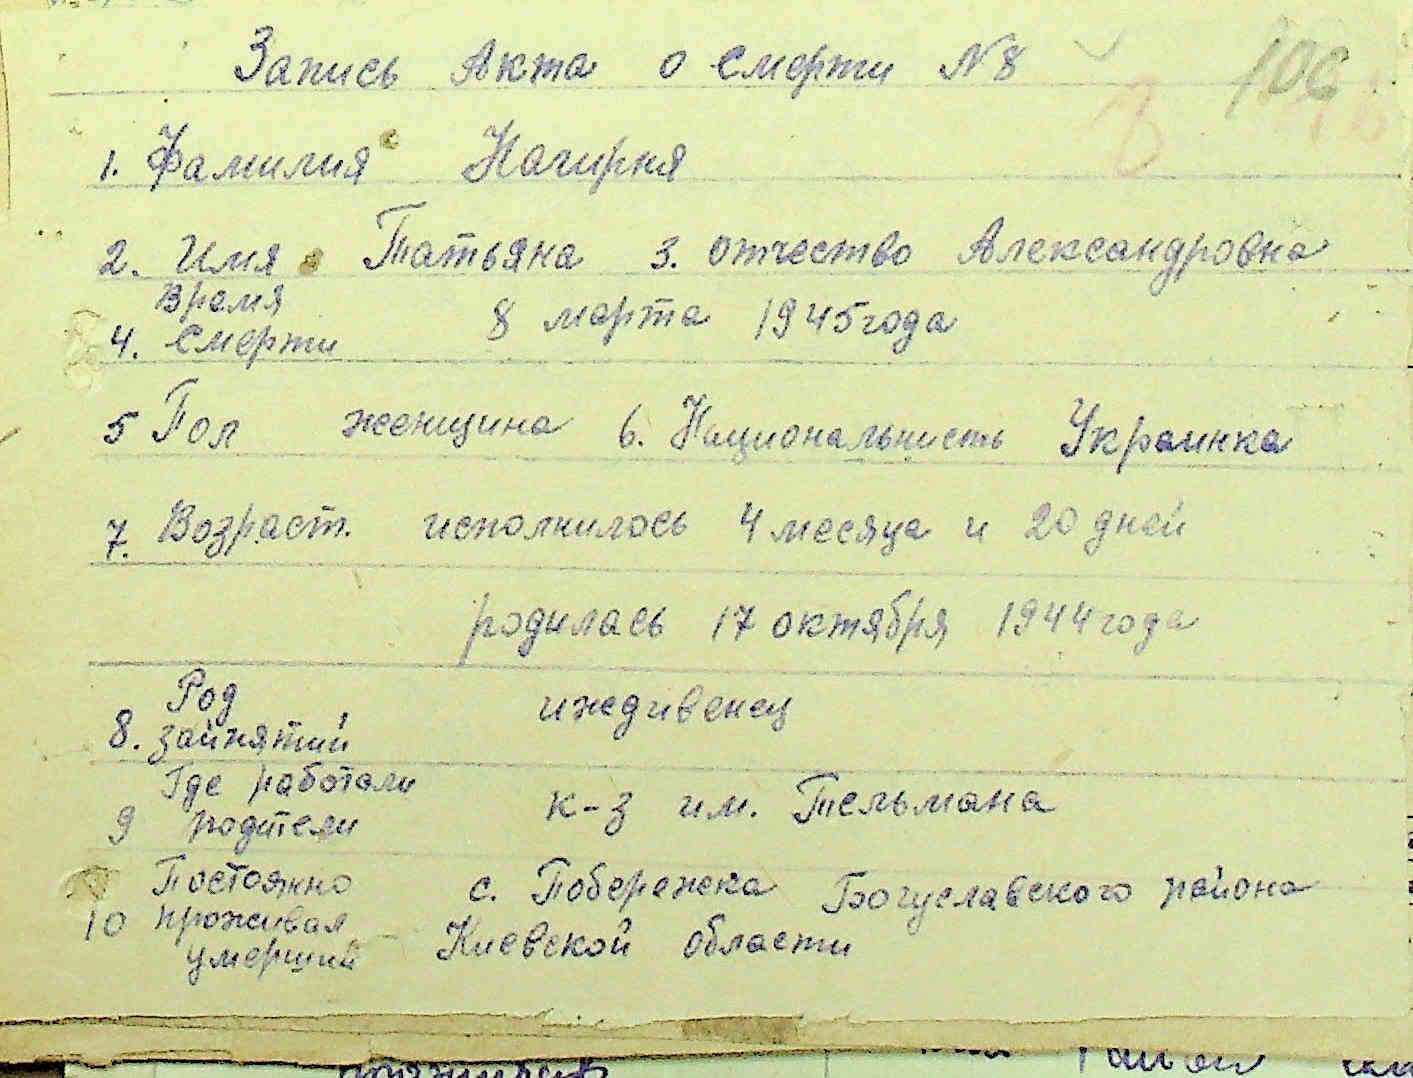 Запись Акта о смерти N 8
106
1. Фамилия Нагирня
2. Имя Татьяна 3. отчество Александровна
Время
4. смерти 8 марта 1945 года
5 Пол женщина 6. Национальность Украинка
7. Возраст. исполнилось 4 месяца и 20 дней
родилась 17 октября 1944 года
Род
8. зайнятий иждивенец
Где работали
9 родители к-з им. Тельмана
Постоянно с. Побережка Богуславского района
10 проживал
умерший Киевской области